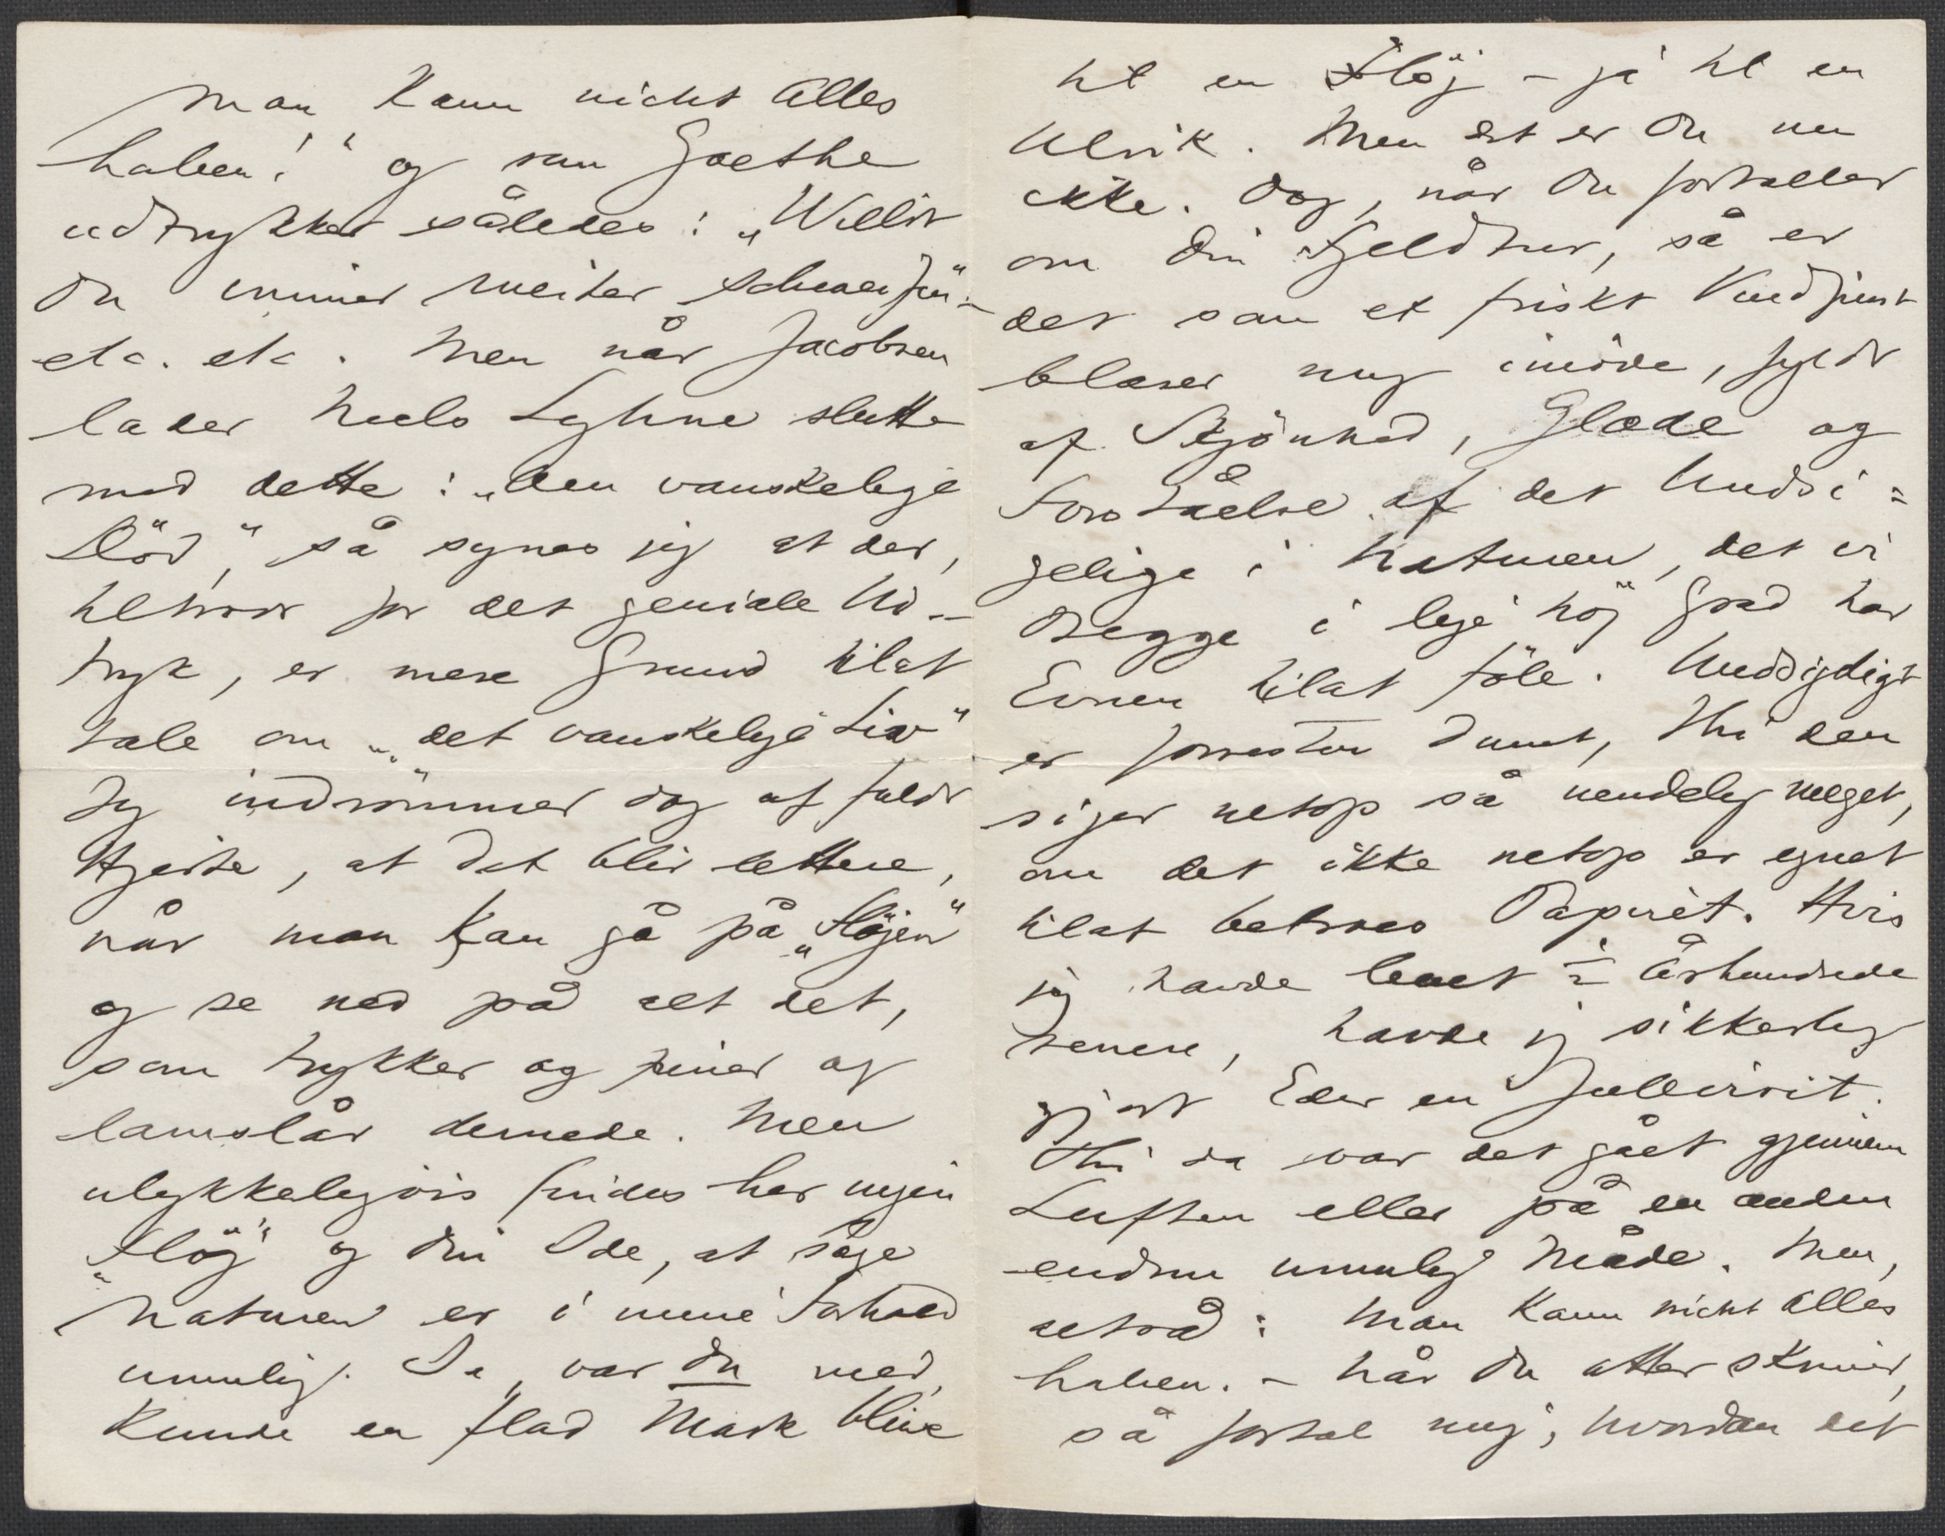 Man kann nicht Alles
haben!" og som Goethe
udtrykker således: "Willst
Du immer weiter schweifen"
etc. etc. Men når Jacobsen
lader Niels Lyhne slutte
med dette: "den vanskelige
Död," så synes jeg at der,
tiltrods for det geniale Ud-
tryk, er mere Grund tilat
tale om "det vanskelige Liv"
Jeg indrömmer dog af fuldt
Hjerte, at det blir lettere,
når man kan gå på "Höjen"
og se ned på alt det,
som trykker og piner og
lamslår dernede. Men
ulykkeligvis findes her ingen
"Höj" og din Ide, at søge
Naturen er i mine Forhold
umulig. Ja, var Du med,
kunde en flad Mark blive
til en Höj – ja til en
Ulrik. Men det er Du nu
ikke. Dog, når Du fortæller
om din Fjeldtur, så er
det som et friskt Vindpust
blæser mig imöde, fyldt
af Skjönhed, Glæde og
Forståelse af det Uudsi=
gelige i Naturen, det vi
Begge i lige höj Grad har
Evnen tilat föle. Uudsigeligt
er forresten dumt, thi den
siger netop så uendelig meget,
om det ikke netop er egnet
tilat betroes Papiret. Hvis
jeg havde levet ½ Århundrede
senere, havde jeg sikkerlig
gjort Eder en Julevisit.
Thi da var det gået gjennem
Luften eller på en anden
endnu umulig Måde. Men,
altså: Man kann nicht Alles
haben. – Når Du atter skriver,
så fortæl mig, hvordan det